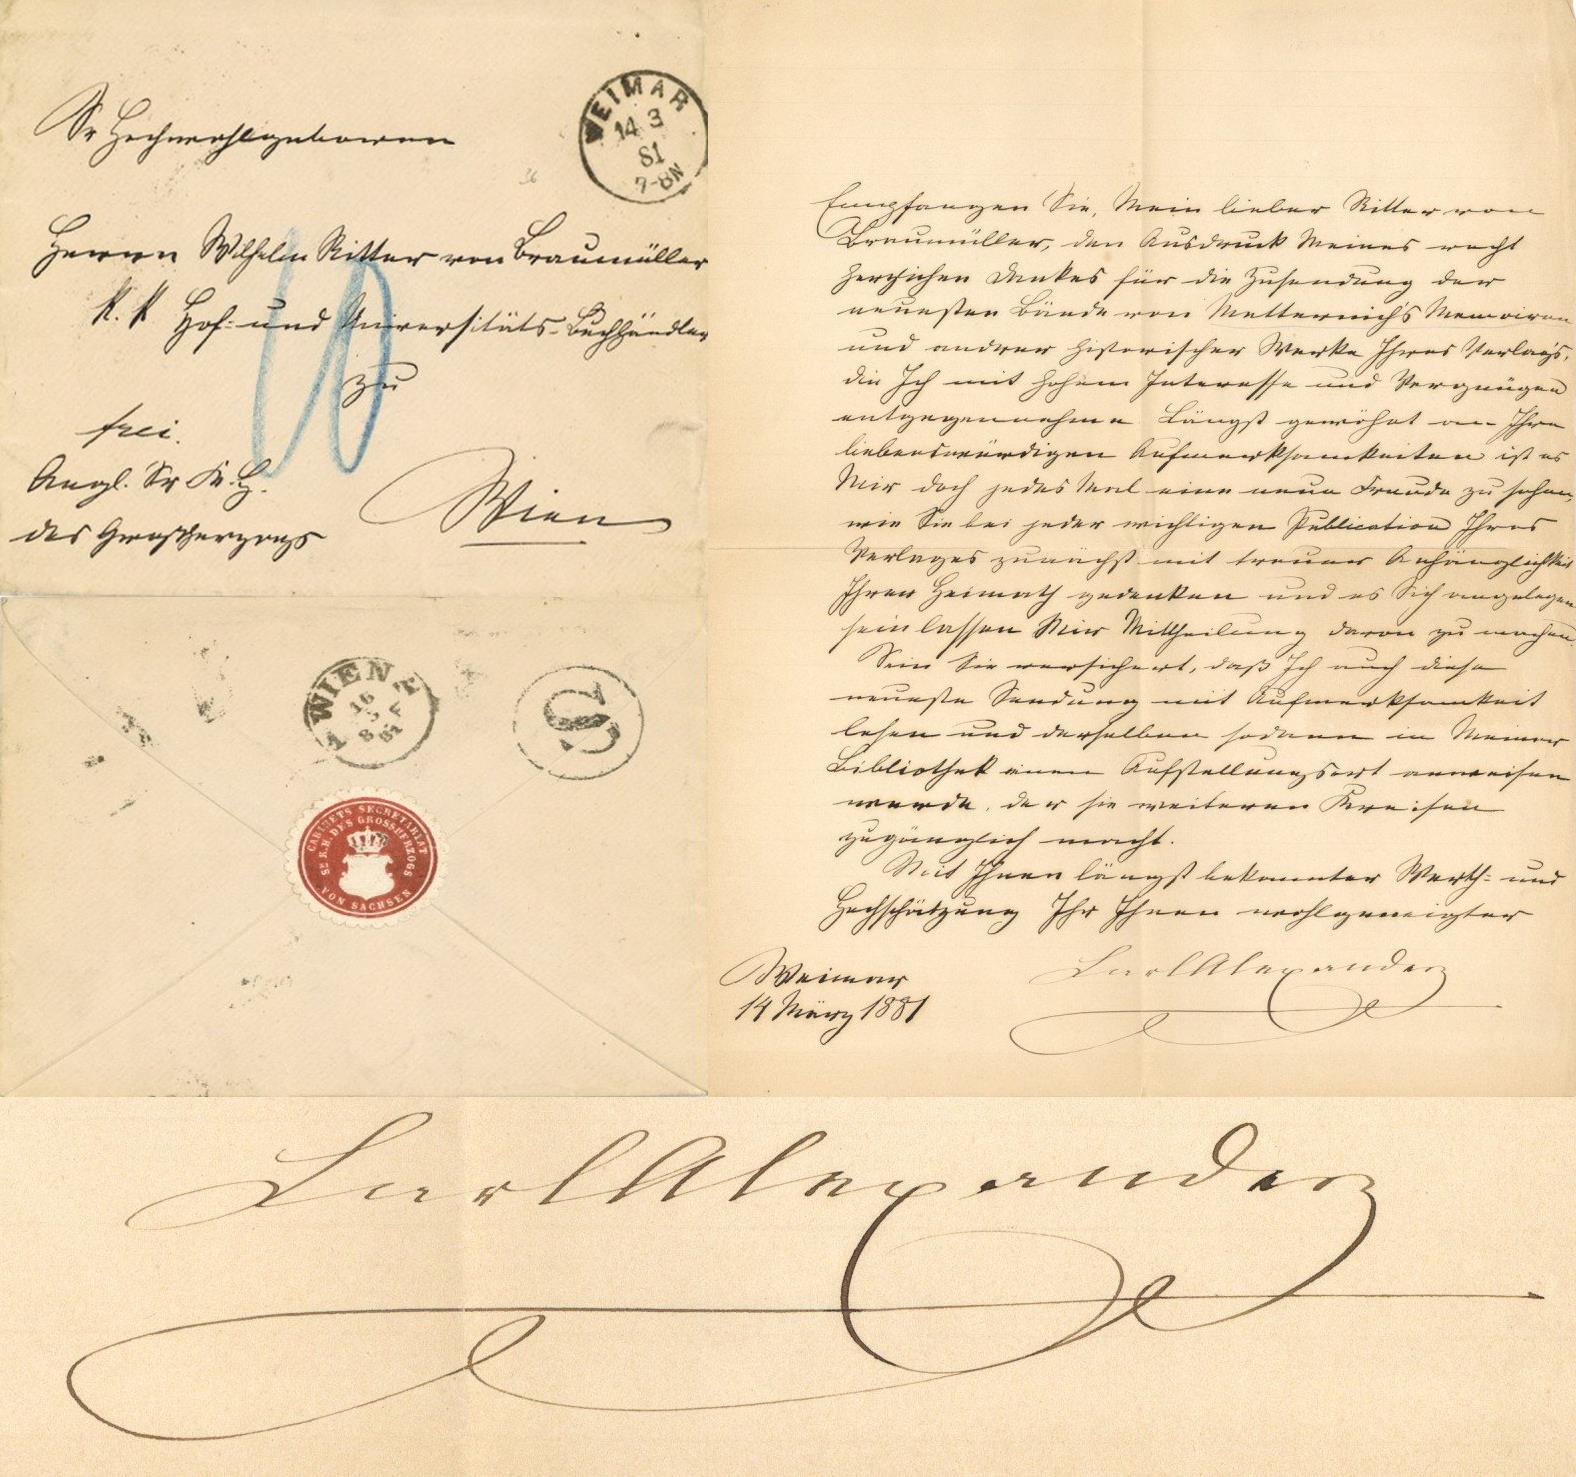 Sr Hochwohlgeboren
Herrn Wilhelm Ritter von Braumüller
K. K Hof- und Universitäts-Buchhändler
zu
frei.
Angl. Sr K. H.
des Großherzogs
Wien
WEIMAR
14 3
81
7-8N
WIEN
1
CABINETS SECRETARIAT
SR K.H. DES GROSSHERZOGS
VON SACHSEN
Empfangen Sie, Mein lieber Ritter von
Braumüller, den Ausdruck Meines recht
herzlichen Dankes für die Zusendung der
neuesten Bände von Metternich's Memoiren
und andrer historischer Werke Ihres Verlag's,
die Ich mit hohem Interesse und Vergnügen
entgegennehme. Längst gewöhnt an Ihre
liebenswürdigen Aufmerksamkeiten ist es
Mir doch jedes Mal eine neue Freude zu sehen,
wie Sie bei jeder wichtigen Publication Ihres
Verlages zunächst mit treuer Anhänglichkeit
Ihrer Heimath gedenken und es Sich angelegen
sein lassen Mir Mittheilung davon zu machen.
Sein Sie versichert, daß Ich auch diese
neueste Sendung mit Aufmerksamkeit
lesen und derselben sodann in Meiner
Bibliothek einen Aufstellungsort anweisen
werde, der sie weiteren Kreisen
zugänglich macht.
Mit Ihnen längst bekannter Werth- und
Hochschätzung Ihr Ihnen wohlgeneigter
Carl Alexander
Weimar
14 März 1881
Carl Alexander